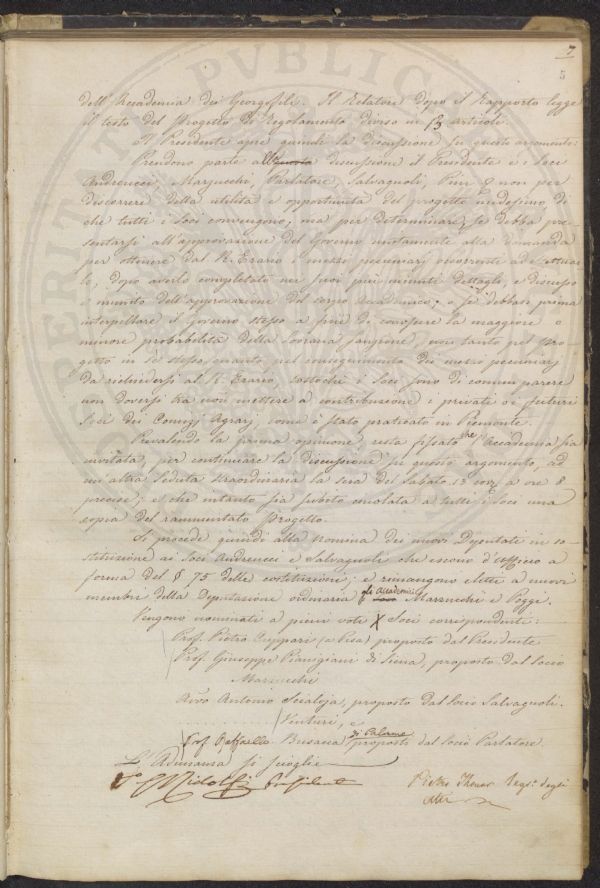 7
5
dell'Accademia dei Georgofili. Il Relatore dopo il Rapporto legge
il testo del Progetto di Regolamento diviso in 63 articoli.
Il Presidente apre quindi la discussione su questo argomento:
Prendono parte alla discussione il Presidente e i Soci
Andreucci, Marzucchi, Parlatore, Salvagnoli, Pini &c non per
discorrere della utilità e opportunità del progetto medesimo di
che tutti i Soci convengono; ma per determinare, se debba pre-
sentarsi all'approvazione del Governo unitamente alla domanda
per ottenere dal R. Erario i mezzi pecuniarj occorrenti ad effettuar-
lo, dopo averlo completato nei suoi più minuti dettagli, e discusso
e munito dell'approvazione del corpo Accademico; o se debbasi prima
interpellare il Governo stesso a fine di conoscere la maggiore o
minore probabilità della Sovrana sanzione, non tanto pel pro-
getto in se stesso, quanto pel conseguimento dei mezzi pecuniarj
da richiedersi al R. Erario, tostochè i Soci sono di comun parere
non doversi tra noi mettere a contribuzione i privati o i futuri
Soci dei Comizj Agrarj, come è stato praticato in Piemonte.
Prevalendo la prima opinione, resta fissato che l'Accademia sia
invitata, per continuare la discussione su questo argomento, ad
un'altra seduta straordinaria la sera del Sabato 12 corr. a ore 8
precise; e che intanto sia subito inviata a tutti i Soci una
copia del rammentato Progetto.
Si procede quindi alla nomina dei nuovi Deputati in so-
stituzione ai Soci Andreucci e Salvagnoli che escono d'Uffizio a
forma del § 75 delle costituzioni; e rimangono eletti a nuovi
membri della Deputazione ordinaria gli Accademici Marzucchi e Poggi.
Vengono nominati a pieni voti X Soci corrispondenti:
Prof. Pietro Cuppari (a Pisa) proposto dal Presidente
Prof. Giuseppe Pianigiani di Siena, proposto dal Socio
Marzucchi
Avvo Antonio Scialoja, proposto dal Socio Salvagnoli.
Venturi, e
Prof Raffaello Busacca di Palermo proposti dal Socio Parlatore.
L'Adunanza si scioglie
C. Ridolfi Presidente
Pietro Thouar Segr. degli
Atti